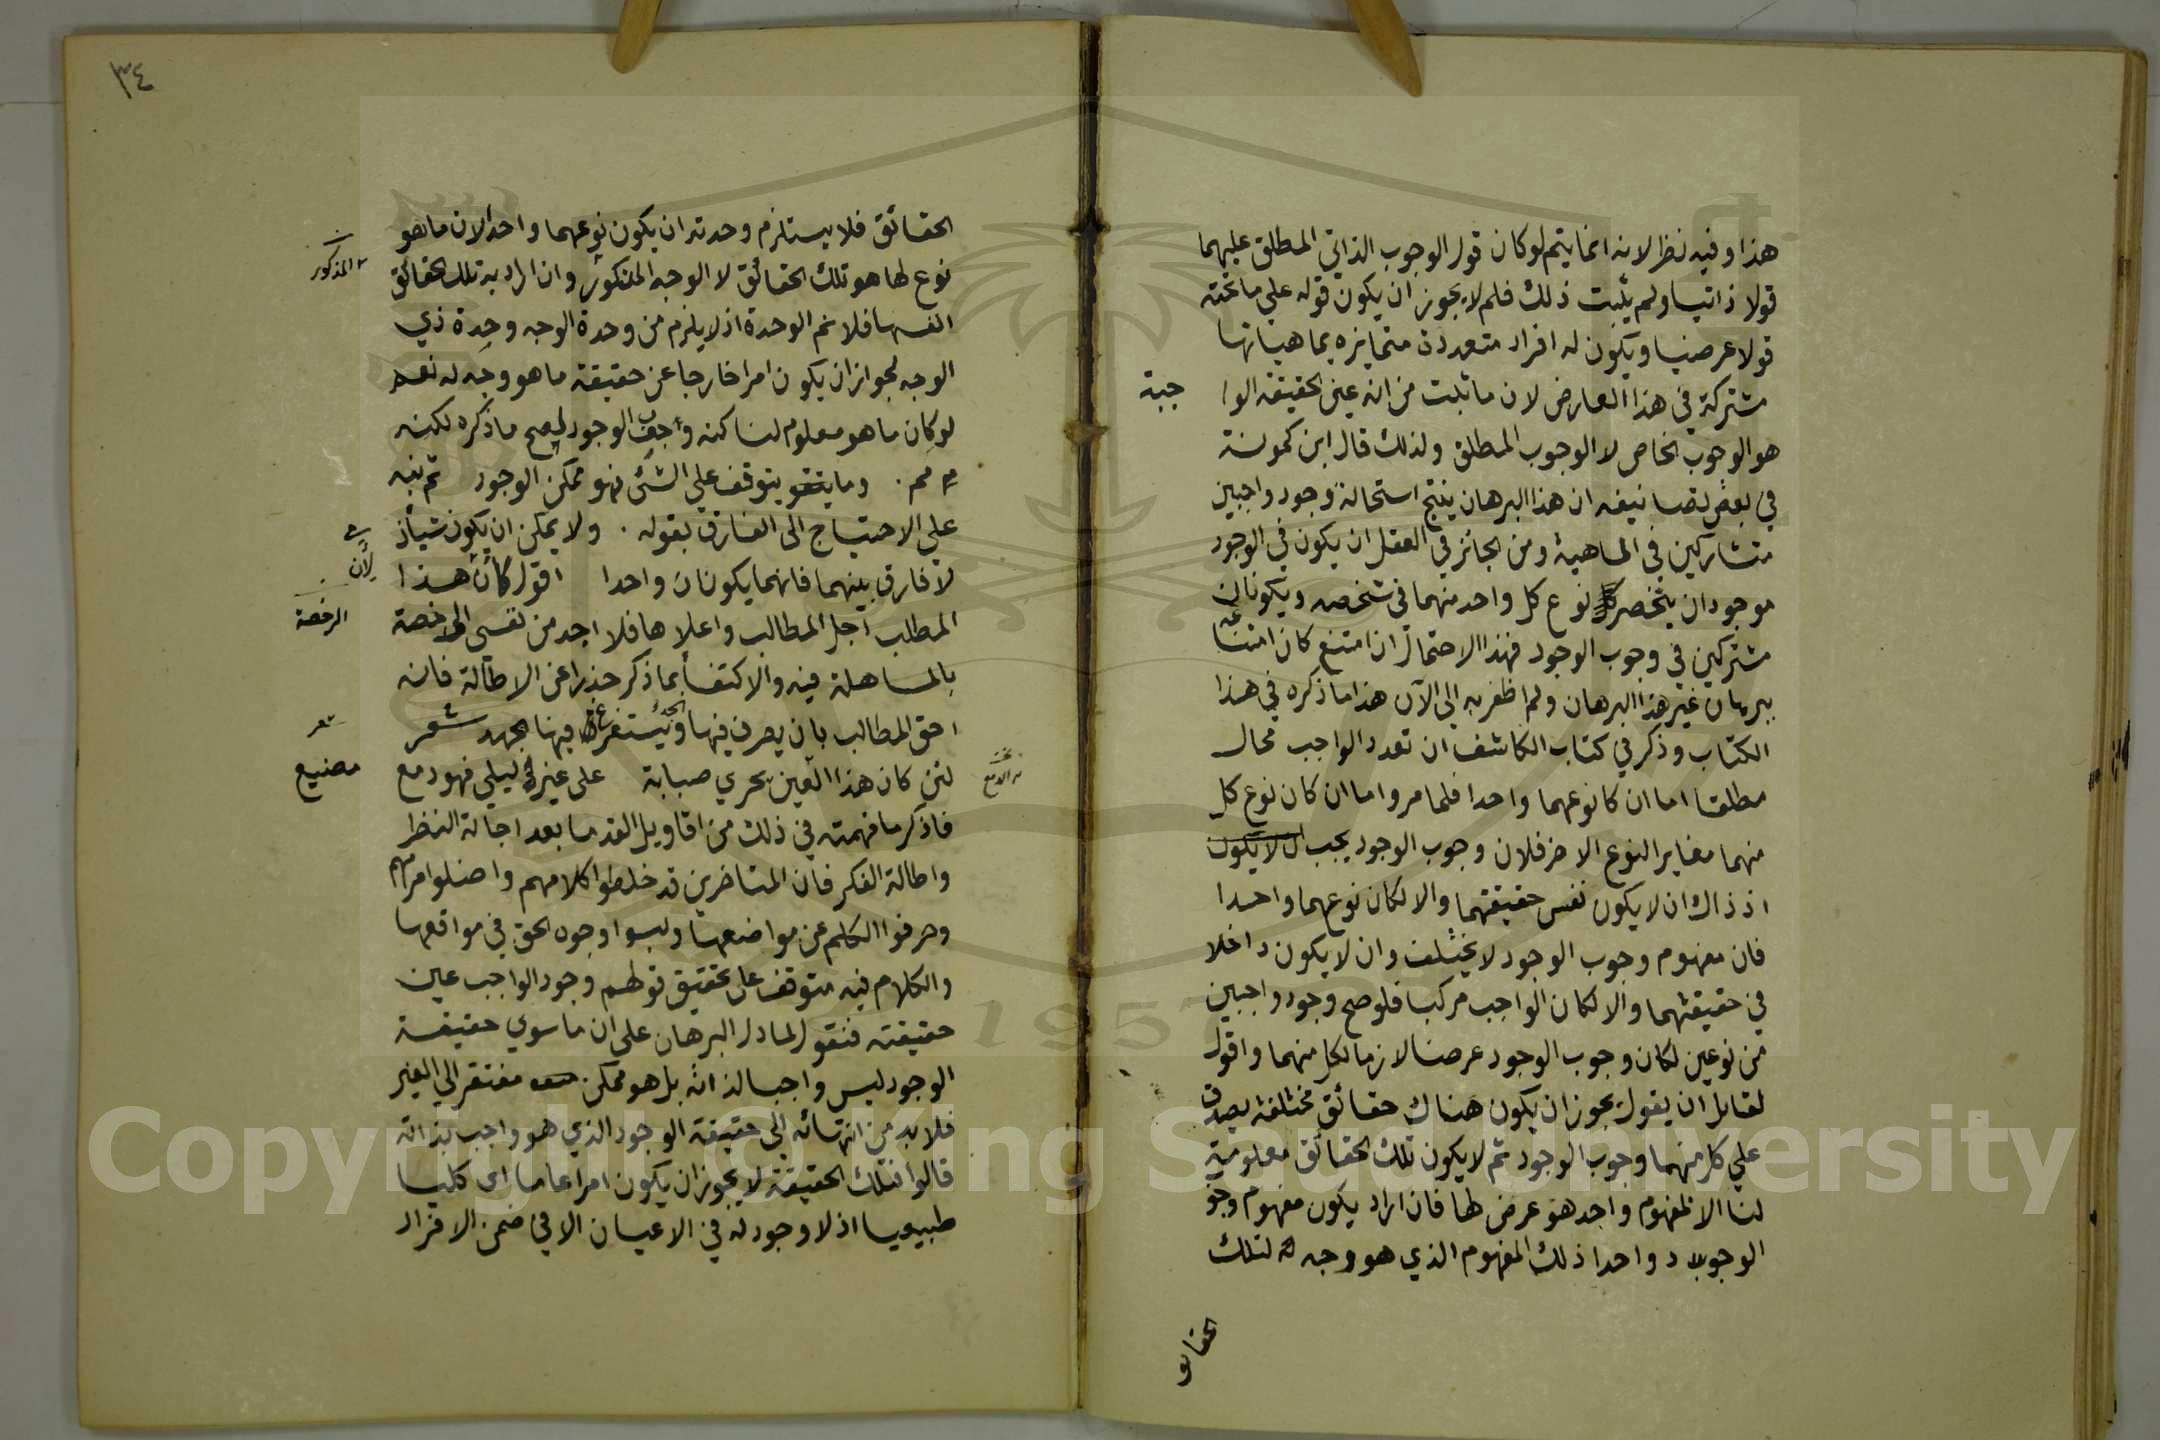 هذا وفيه نظر لانه انما يتم لو كان قول الوجوب الذاتي المطلق عليهما
قولا ذاتيا ولم يثبت ذلك فلم لا يجوز ان يكون قوله علي ما تحته
قولا عرضيا ويكون له افراد متعددة متمايزه بماهياتها
مشتركة في هذا العارض لان ما ثبت من انه عين الحقيقة الوا
جبة
هو الوجوب الخاص لا الوجوب المطلق ولذلك قال ابن كمونة
في بعض تصانيفه ان هذا البرهان ينتج استحالة وجود واجبين
متشاركين في الماهية ومن الجائز في العقل ان يكون في الوجود
موجودان ينحصر نوع كل واحد منهما في شخصه ويكونان
مشتركين في وجوب الوجود فهذا الاحتمال ان امتنع كان امتناعه
ببرهان غير هذا البرهان ولم اظفر به الي الآن هذا ما ذكره في هذا
الكتاب وذكر في كتاب الكاشف ان تعدد الواجب محال
مطلقا اما ان كا نوعهما واحدا فلما مر واما ان كان نوع كل
منهما مغاير النوع الاخر فلان وجوب الوجود يجب ان لا يكون
اذ ذاك ان لا يكون نفس حقيقتهما والا لكان نوعهما واحدا
فان مفهوم وجوب الوجود لا يختلف وان لا يكون داخلا
في حقيقتهما والا لكان الواجب مركبا فلو صح وجود واجبين
من نوعين لكان وجوب الوجود عرضا لازما لكل منهما واقول
لقايل ان يقول يجوز ان يكون هناك حقائق مختلفة يصدق
علي كل منهما وجوب الوجود ثم لا يكون تلك الحقائق معلومة
لنا الا لمفهوم واحد هو عرض لها فان اراد يكون مفهوم وجو
الوجوب د واحدا ذلك المفهوم الذي هو وجه لتلك
الحقايق
٣٤
الحقائق فلا يستلزم وحدته ان يكون نوعهما واحدا لان ما هو
نوع لها هو تلك الحقائق لا الوجه المذكور وان اراد به تلك الحقائق
المذكور
انفسها فلا نم الوحدة اذ لا يلزم من وحدة الوجه وحدة ذي
الوجه لجواز ان يكون امرا خارجا عن حقيقة ما هو وجه له نعم
لو كان ما هو معلوم لنا كنه واجب الوجود ليصح ما ذكره لكنه
مم . وما يتوقف علي الشئ فهو ممكن الوجود ثم نبه
علي الاحتياج الى الفارق بقوله . ولا يمكن ان يكون شيأن
لا فارق بينهما فانهما يكونان واحدا اقول كأن هذا
لأن
المطلب اجل المطالب واعلاها فلا اجد من نفسي الرخصة
الرخصة
بالمساهلة فيه والاكتفأ بما ذكر حذرا عن الاطالة فانه
احق المطالب بان يصرف فيها ويستفرغ فيها الجهد شعر
شعر
لئن كان هذا العين يجري صبابة على غير ليلي فهو دمع
مضيع
فاذكر ما فهمته في ذلك من اقاويل القدما بعد اجالة النظر
واطالة الفكر فان المتاخرين قد خلطوا كلامهم واضلوا مرامهم
وحرفوا الكلم عن مواضعها ولبسوا وجوه الحق في مواقعها
والكلام فيه متوقف على تحقيق قولهم وجود الواجب عين
حقيقته فنقول لما دل البرهان على ان ما سوي حقيقة
الوجود ليس واجبا لذاته بل هو ممكن مفتقر الي الغير
فلا بد من انتهائه الي حقيقة الوجود الذي هو واجب بذاته
قالوا فتلك الحقيقة لا يجوز ان يكون امرا عاما اي كليا
طبيعيا اذ لا وجود له في الاعيان الا في ضمن الافراد
Copyright © King Saud University
195